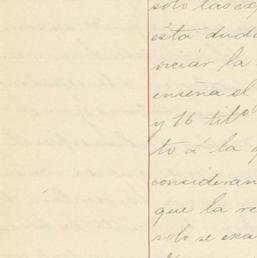 solo las exp
ésta duda
viciar la
enseña el
y 16 titº
to á la q
consideran
que la re
solo se exa